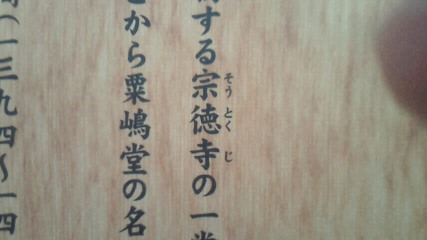 する宗徳寺の一
そうとくじ
から粟嶋堂の名
(一三九四〜一四